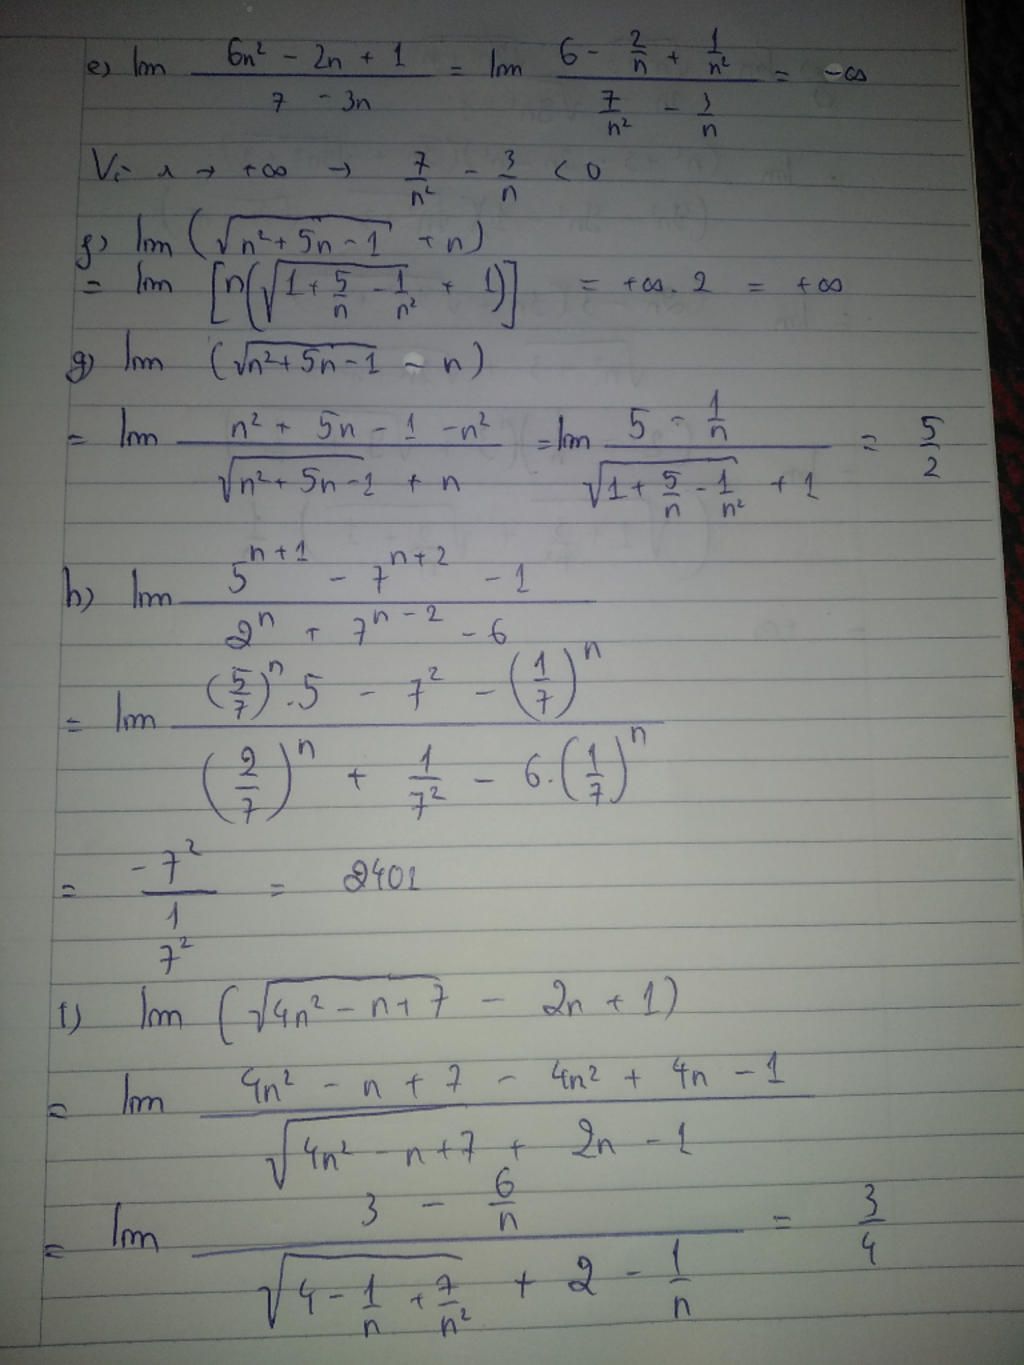 e) lim (6n² - 2n + 1)/(7 - 3n) = lim (6 - 2/n + 1/n²)/(7/n² - 3/n) = -∞
Vì n → +∞ → 7/n² - 3/n < 0
f) lim (√(n² + 5n - 1) + n)
= lim [n(√(1 + 5/n - 1/n²) + 1)] = +∞ . 2 = +∞
g) lim (√(n² + 5n - 1) - n)
= lim (n² + 5n - 1 - n²)/(√(n² + 5n - 1) + n) = lim (5 - 1/n)/(√(1 + 5/n - 1/n²) + 1) = 5/2
h) lim (5^(n+1) - 7^(n+2) - 1)/(2^n + 7^(n-2) - 6)
= lim ((5/7)^n . 5 - 7² - (1/7)^n)/((2/7)^n + 1/7² - 6.(1/7)^n)
= (-7²)/(1/7²) = 2401
i) lim (√(4n² - n + 7) - 2n + 1)
= lim (4n² - n + 7 - 4n² + 4n - 1)/(√(4n² - n + 7) + 2n - 1)
= lim (3 - 6/n)/(√(4 - 1/n + 7/n²) + 2 - 1/n) = 3/4